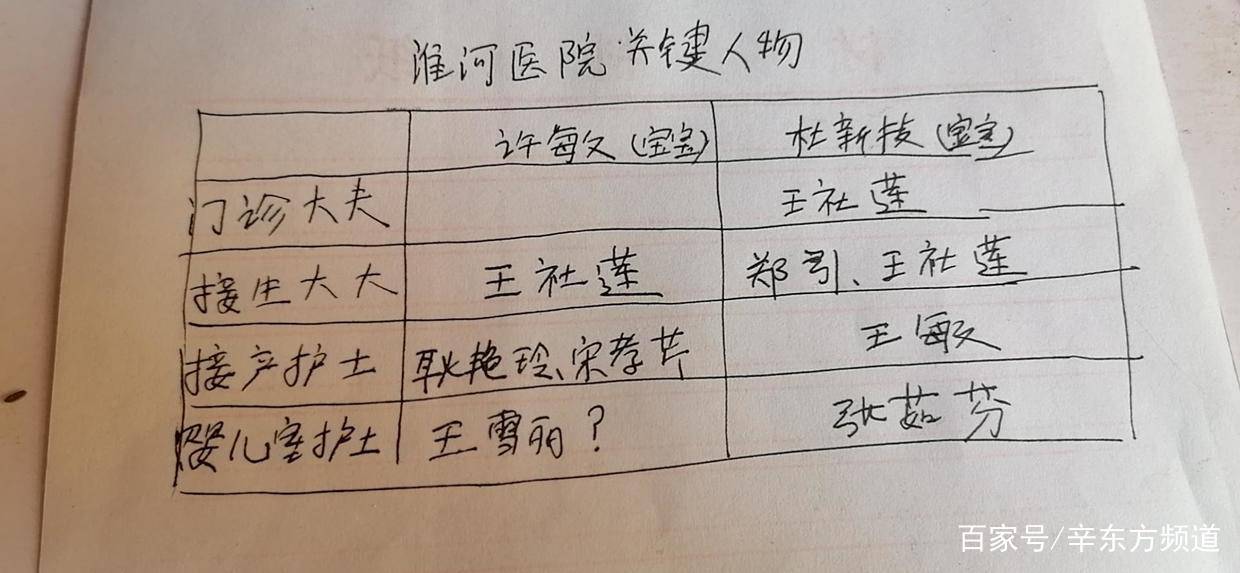 淮河医院关键人物
许敏(宝宝) 杜新枝(宝宝)
门诊大夫 王社莲
接生大大 王社莲 郑引、王社莲
接产护士 耿艳玲、宋孝芹 王敏
婴儿室护士 王雪丽? 张茹芬
百家号/辛东方频道